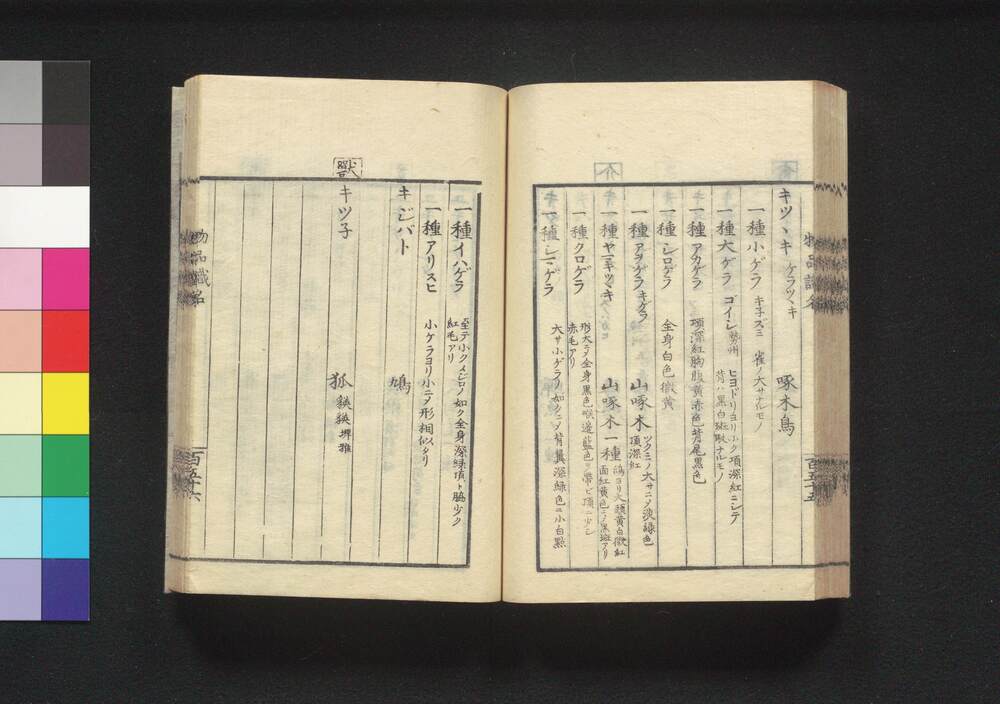 物品識名
百五十五
キツヽキ ケラツヽキ 啄木鳥
一種小ゲラ キ子ズミ 雀ノ大サナルモノ
一種大ゲラ ゴイシ勢州 ヒヨドリヨリ小ク項深紅ニシテ
背ハ黒白斑駁ナルモノ
一種アカゲラ 項深紅胸腹黄赤色背尾黒色
一種シロゲラ 全身白色微黄
一種アヲゲラ キゲラ 山啄木 ツクミノ大サニメ淡緑色
頂深紅
一種ヤマキツヽキ 山啄木一種 鴿ヨリ大頭黄白微紅
面紅黄色ニメ黒斑アリ
一種クロゲラ 形大ニメ全身黒色喉邊藍色ヲ帶ビ頂ニ少シ
赤毛アリ
一種シマゲラ 大サ小ゲラノ如クニメ背翼深緑色ニ小白點
一種イハゲラ 至テ小クメジロノ如ク全身深緑頂ト脇少ク
紅毛アリ
一種アリスヒ 小ケラヨリ小ニメ形相似タリ
キジバト 鳩
獸
キツ子 狐 貕貕埤雅
物品識名
百五十六